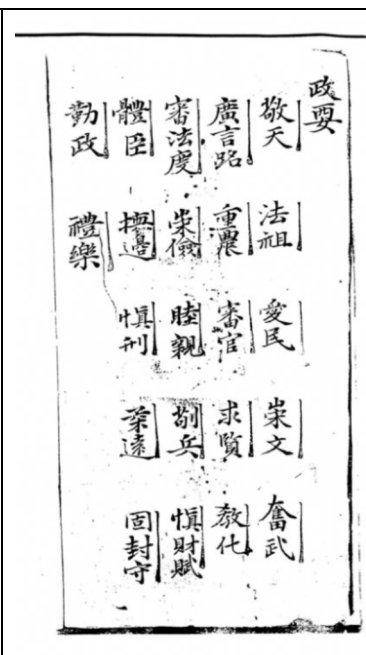 政要
敬天 法祖 愛民 崇文 奮武
廣言路 重農 審官 求賢 教化
審法度 崇儉 睦親 兵 慎財賦
體臣 撫邊 慎刑 柔遠 固封守
勤政 禮樂